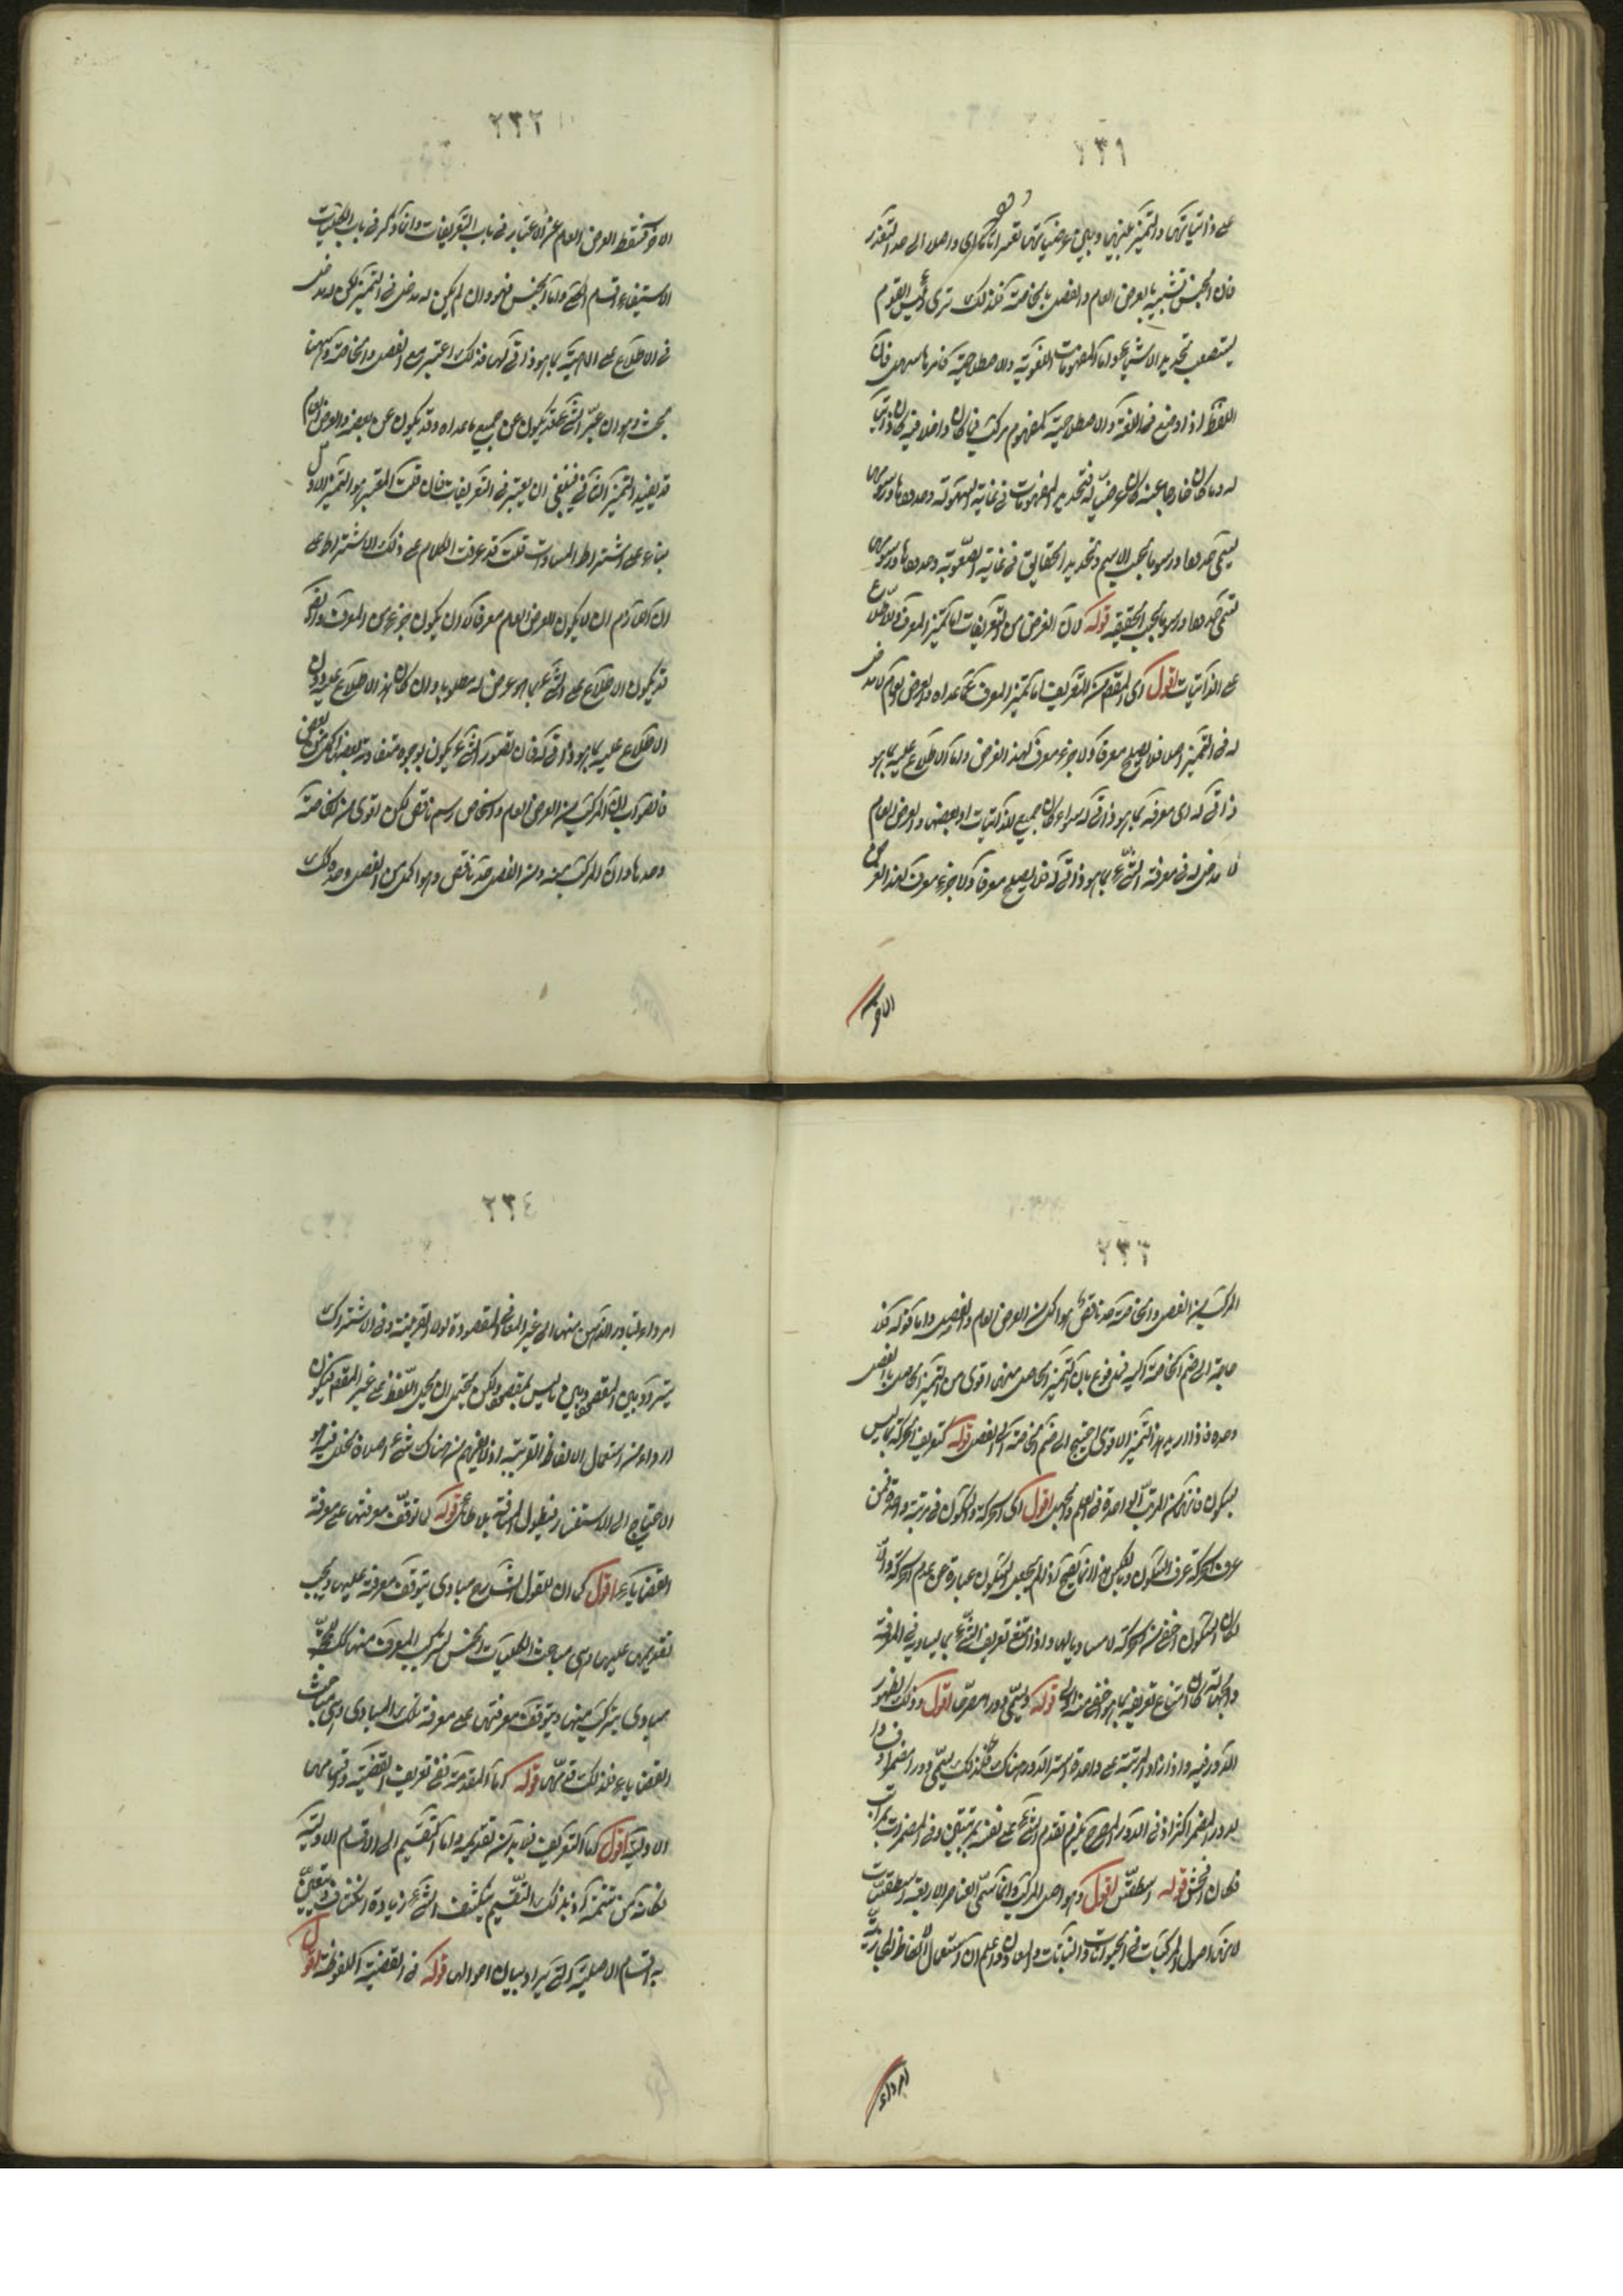 ٢٣١
على ذاتياتها والتميز بينها وبين عرضياتها تعسرا تاما واصلا الى حد التعذر
فان الجنس تشبيه بالعرض العام والفصل بالخاصة فلذلك ترى رئيس القوم
يستصعب تحديد الاشياء واما المفهومات اللغوية والاصطلاحية فامرها سهل فان
اللفظ اذا وضع في اللغة والاصطلاحية لمفهوم مركب فما كان داخلا فيه كان ذاتيا
له وما كان خارجا عنه كان عرضيا له فتحديد المفهومات في غاية السهولة وحدودها ورسومها
يسمى حدودا ورسوما بحسب الاسم وتحديد الحقايق في غاية الصعوبة وحدودها ورسومها
تسمى حدودا ورسوما بحسب الحقيقة قوله لان الغرض من التعريفات اما تميز المعرف او الاطلاع
على الذاتيات اقول اى المقصد من التعريف اما تميز المعرف عما عداه والعرض العام لا مدخل
له في التميز اصلا فلا يصلح معرفا ولا جزء معرف لهذا الغرض واما الاطلاع عليه بما هو
ذاتي له اى معرفة بما هو ذاتي له سواء كان جميع الذاتيات او بعضها والعرض العام
لا مدخل له في معرفة الشيء بما هو ذاتي له فلا يصلح معرفا ولا جزء معرف لهذا الغرض
الاخر
٢٣٢
الاخر فسقط العرض العام عن الاعتبار في باب التعريفات وانما ذكر في باب الكليات
لاستيفاء اقسام الكلي واما الجنس فهو وان لم يكن له مدخل في التميز لكن له مدخل
في الاطلاع على الماهية بما هو ذاتي لها فلذلك اعتبر مع الفصل والخاصة وههنا
بحث وهو ان تميز الشيء قد يكون عن جميع ما عداه وقد يكون عن بعضه والعرض العام
قد يفيد التميز الثاني فينبغي ان يعتبر في التعريفات فان قلت المعتبر هو التميز الاول
بناء على اشتراط المساواة قلت قد عرفت الكلام على ذلك الاشتراط على
ان اللازم ان لا يكون العرض العام معرفا لا ان يكون جزء من المعرف وايضا
قد يكون الاطلاع على الشيء بما هو عرض له مطلوبا وان كان هذا الاطلاع عليه دون
الاطلاع عليه بما هو ذاتي له فان تصور الشيء يكون بوجوه متفاوتة بعضها اكمل من بعض
فالصواب ان المركب من العرض العام والخاص رسم ناقص لكن اقوى من الخاصة
وحدها وان المركب منه ومن الفصل حد ناقص وهو اكمل من الفصل وحده وكذا
٢٣٣
المركب من الفصل والخاصة حد ناقص هو اكمل من العرض العام والفصل واما قوله فلا
حاجة الى ضم الخاصة اليه فمدفوع بان التميز الحاصل منهما اقوى من التميز الحاصل بالفصل
وحده فاذا اريد هذا التميز الاقوى احتيج الى ضم الخاصة الى الفصل قوله كتعريف الحركة بما ليس
بسكون فانهما في المرتبة الواحدة في العلم والجهل اقول اى الحركة والسكون في مرتبة واحدة فمن
عرف الحركة عرف السكون وبالعكس هذا انما يصح اذا لم يجعل السكون عبارة عن عدم الحركة والا
لكان السكون اخفى من الحركة لا مساويا لها واذا امتنع تعريف الشيء بما يساويه في المعرفة
والجهالة كان امتناع تعريفه بما هو اخفى منه اولى قوله ويسمى دورا مصرحا اقول وذلك لظهور
الدور فيه واذا زاد المرتبة على واحدة استتر الدور هناك فلذلك يسمى دورا مضمرا وفساد
الدور المضمر اكثر اذ في الدور المصرح يلزم تقدم الشيء على نفسه بمرتبتين وفي المضمر بمراتب
فكان افحش قوله اسطقس اقول وهو اصل المركب وانما سمى العناصر الاربعة اسطقسات
لانها اصول المركبات في الحيوانات والنباتات والمعادن واعلم ان استعمال الالفاظ المجازية
امر داء
٢٣٤
امر داء لتبادر الذهن منها الى غير المعاني المقصودة لولا القرينة وفي الاشتراك
يتردد بين المقصود وبين ما ليس بمقصود ولكن يحتمل ان يحمل اللفظ على غير المقصد فيكون
اردأ من استعمال الالفاظ الغريبة اذ لا يفهم من هناك شيء اصلا ففيه هو
الاحتياج الى الاستفسار فيطول المسافة بلا طائل قوله لا توقف معرفتها على معرفة
القضايا اقول كما ان للقول الشارح مبادى يتوقف معرفته عليها ويجب
تقديمها عليه وهى مباحث الكليات الخمس لتركب المعرف منها كذلك للحجة
مبادى يتركب منها ويتوقف معرفتها على معرفة تلك المبادى وهى مباحث
القضايا فلذلك قدمها قوله اما المقدمة ففي تعريف القضية واقسامها
الاولية اقول اما التعريف فلا بد من تقديمه واما التقسيم الى الاقسام الاولية
فلانه من تتمته اذ بذلك التقسيم ينكشف الشيء زيادة انكشاف ويتعين
به اقسام الاصلية التي يراد بيان احوالها قوله في القضية الملفوظة اقول